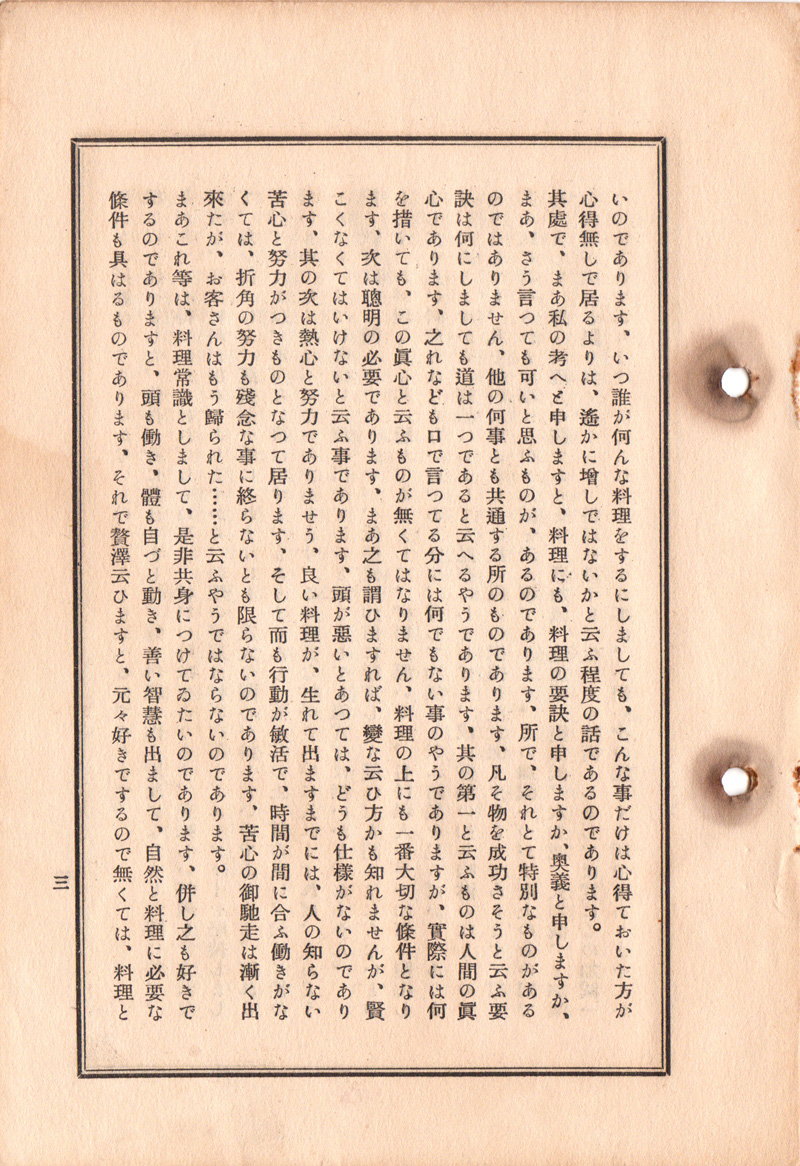 いのであります、いつ誰が何んな料理をするにしましても、こんな事だけは心得ておいた方が
心得無しで居るよりは、遙かに增しではないかと云ふ程度の話であるのであります。
其處で、まあ私の考へと申しますと、料理にも、料理の要訣と申しますか、奥義と申しますか、
まあ、さう言つても可いと思ふものが、あるのであります、所で、それとて特別なものがある
のではありません、他の何事とも共通する所のものであります、凡そ物を成功さそうと云ふ要
訣は何にしましても道は一つであると云へるやうであります、其の第一と云ふものは人間の眞
心であります、之れなども口で言つてる分には何でもない事のやうでありますが、實際には何
を措いても、この眞心と云ふものが無くてはなりません、料理の上にも一番大切な條件となり
ます、次は聰明の必要であります、まあ之も謂ひますれば、變な云ひ方かも知れませんが、賢
こくなくてはいけないと云ふ事であります、頭が惡いとあつては、どうも仕樣がないのであり
ます、其の次は熱心と努力でありませう、良い料理が、生れて出ますまでには、人の知らない
苦心と努力がつきものとなつて居ります、そして而も行動が敏活で、時間が間に合ふ働きがな
くては、折角の努力も殘念な事に終らないとも限らないのであります、苦心の御馳走は漸く出
來たが、お客さんはもう歸られた……と云ふやうではならないのであります。
まあこれ等は、料理常識としまして、是非共身につけてゐたいのであります、併し之も好きで
するのでありますと、頭も働き、體も自づと動き、善い智慧も出まして、自然と料理に必要な
條件も具はるものであります、それで贅澤云ひますと、元々好きでするので無くては、料理と
三